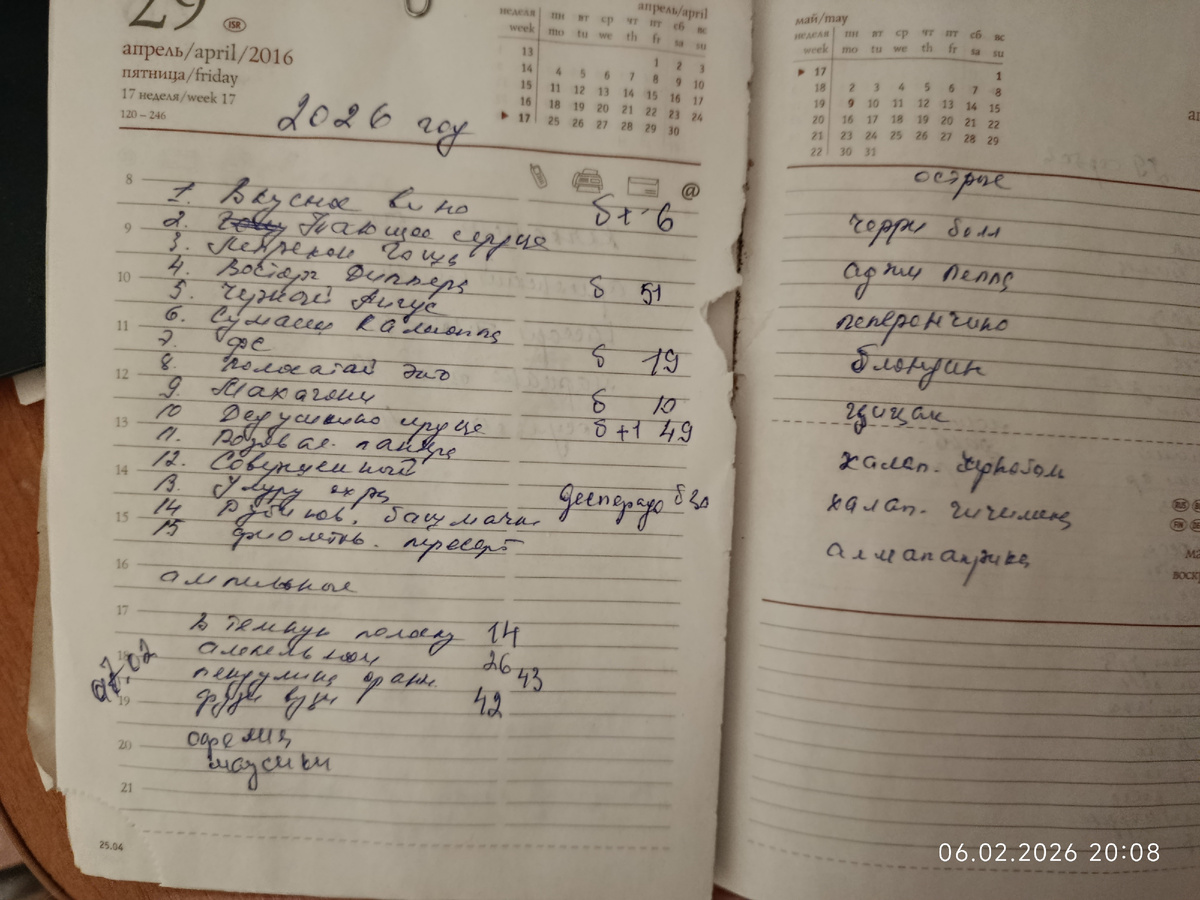 29
ISR
апрель/april/2016
пятница/friday
17 неделя/week 17
120 – 246
апрель/april
неделя пн вт ср чт пт сб вс
week mo tu we th fr sa su
13 1 2 3
14 4 5 6 7 8 9 10
15 11 12 13 14 15 16 17
16 18 19 20 21 22 23 24
17 25 26 27 28 29 30
2026 году
8
1. Вкусное вино б+ 6
2. Тающее сердце
9
3. Лепрекон
4. Восторг Диппера б 51
10
5. Черной Ангус
6. Сумасш
11
7. фс б 19
8. Полосатой
12
9. Махагони б 10
10 Дедушкино сердце б+1 49
13
11. Розовая пантера
12. Совершенный
14
13. Улуру охра Десперадо
14 Рубинов. башмачки
15
15 фиолетов.
16
ампельные
17
В темную полоску 14
18
ампельн 26
пендулина оранж. 43
07.02
19
фуджи 42
офелия
20
маусики
21
25.04
май/may
неделя пн вт ср чт пт сб вс
week mo tu we th fr sa su
17 1
18 2 3 4 5 6 7 8
19 9 10 11 12 13 14 15
20 16 17 18 19 20 21 22
21 23 24 25 26 27 28 29
22 30 31
острые
черри болл
аджи
пеперончино
блондин
цицак
халап.
халап. чичимека
алмапаприка
06.02.2026 20:08